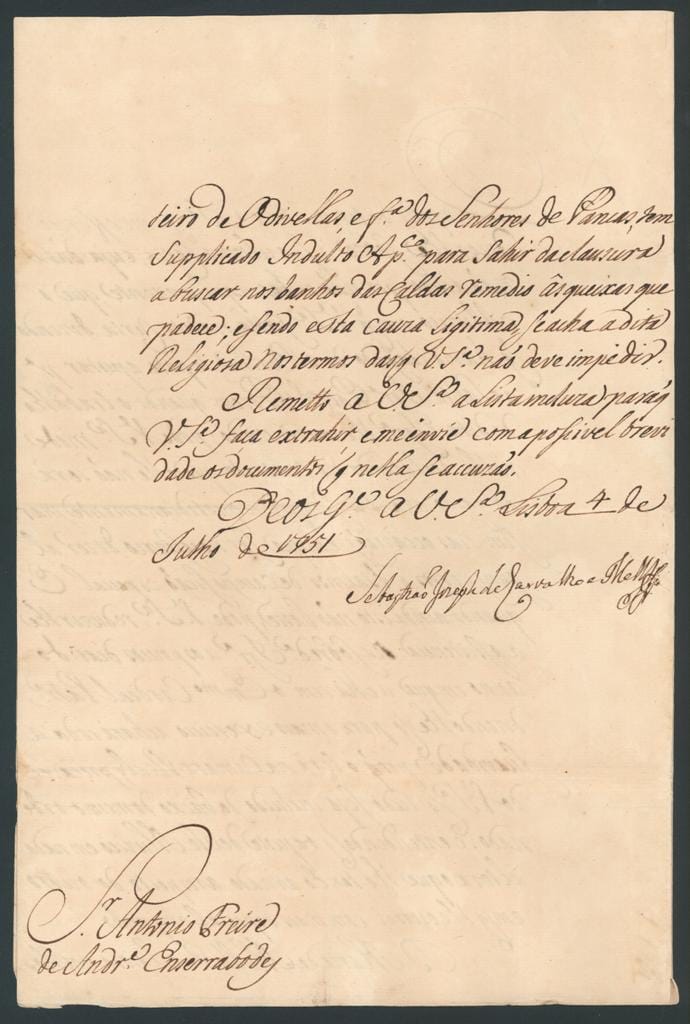 teiro de Odivellas, e f.ª dos Senhores de Pancas, tem
Supplicado Indulto Ap.co para Sahir da clausura
a buscar nos banhos das Caldas remedio ás queixas que
padece; e sendo esta cauza Ligitima, se acha a dita
Religiosa nos termos das q V. S.ª naõ deve impedir.
Remetto a V. S.ª a Lista incluza, para q
V. S.ª faça extrahir, e me envie com a possivel brevi
dade os documentos, q nella se accuzaõ.
Deos g.e a V. S.ª Lisboa 4 de
Julho de 1751
Sebastiaõ Joseph de Carvalho e Mello
S.r Antonio Freire
de Andr.e Enserrabodes